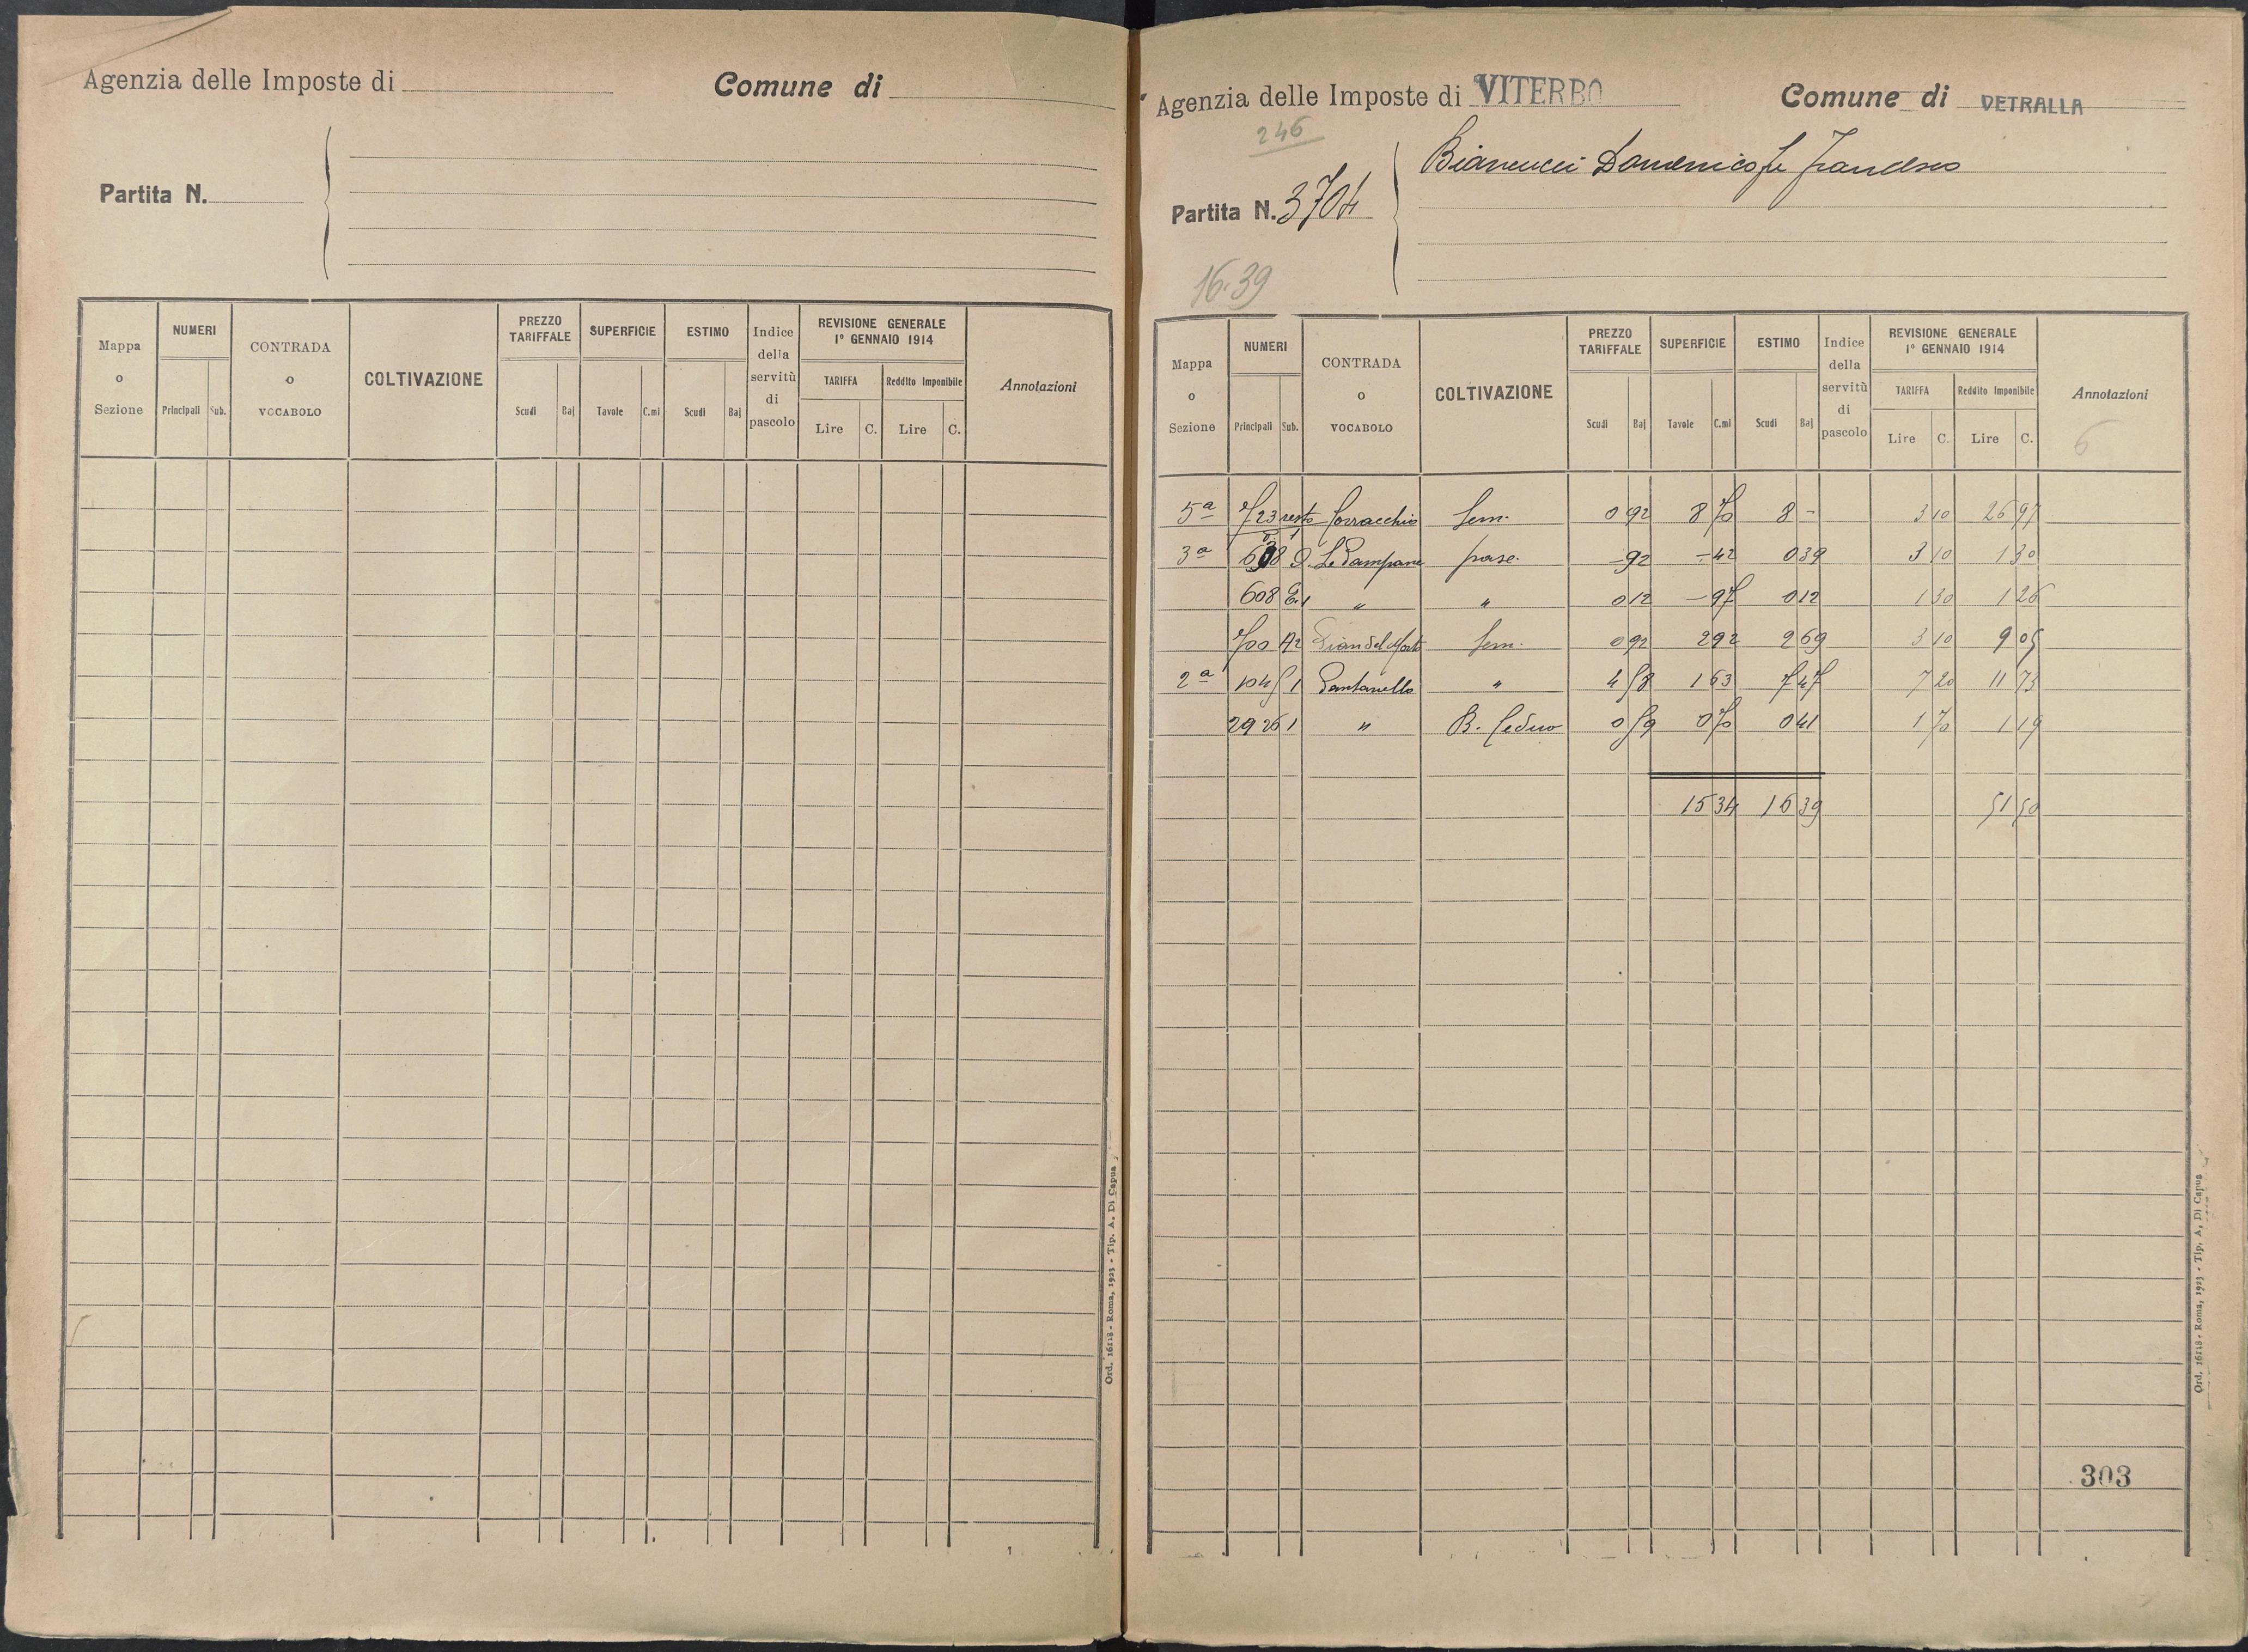 Agenzia delle Imposte di
Comune di
Partita N.
Mappa o Sezione
NUMERI
Principali Sub.
CONTRADA o VOCABOLO
COLTIVAZIONE
PREZZO TARIFFALE
Scudi Baj
SUPERFICIE
Tavole C.mi
ESTIMO
Scudi Baj
Indice della servitù di pascolo
REVISIONE GENERALE
1° GENNAIO 1914
TARIFFA Reddito Imponibile
Lire C. Lire C.
Annotazioni
Ord. 16118 - Roma, 1923 - Tip. A. Di Capua
Agenzia delle Imposte di VITERBO
Comune di VETRALLA
246
Partita N. 3704
Biancucci Domenico fu Francesco
16.39
Mappa o Sezione
NUMERI
Principali Sub.
CONTRADA o VOCABOLO
COLTIVAZIONE
PREZZO TARIFFALE
Scudi Baj
SUPERFICIE
Tavole C.mi
ESTIMO
Scudi Baj
Indice della servitù di pascolo
REVISIONE GENERALE
1° GENNAIO 1914
TARIFFA Reddito Imponibile
Lire C. Lire C.
Annotazioni
6
5a 723 resto Sem. 0 92 8 70 8 - 3 10 26 97
3a Le Pampane pasc. - 92 - 42 0 39 3 10 1 30
608 E.1 " " 0 12 - 97 0 12 1 30 1 26
700 A2 Pian del Sem. 0 92 2 92 2 69 3 10 9 05
2a 1045 1 Pantanello " 4 58 1 63 7 47 7 20 11 73
2926 1 " B. Ceduo 0 59 0 70 0 41 1 70 1 19
15 34 16 39 51 50
303
Ord. 16118 - Roma, 1923 - Tip. A. Di Capua